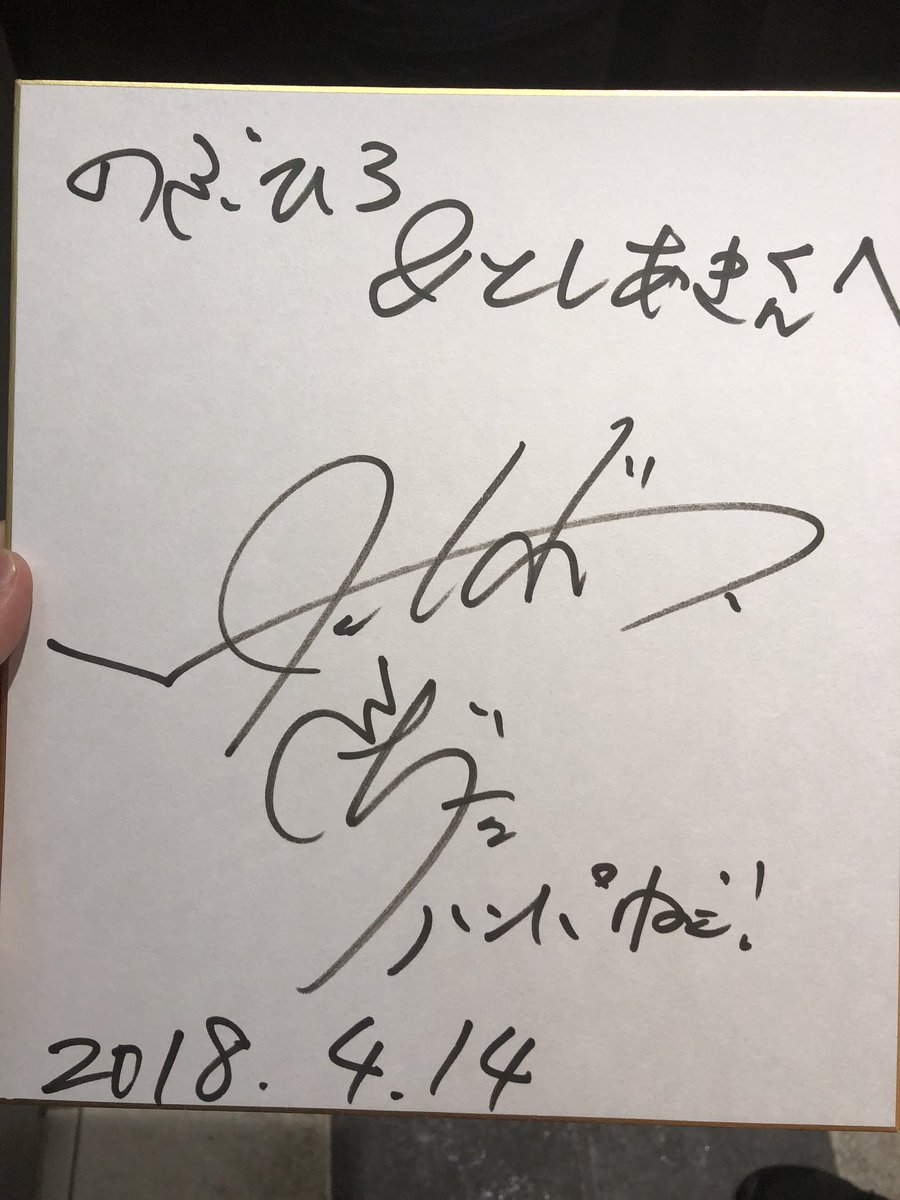 のぶひろ
&としあきくんへ
ハンパねぇ!
2018.4.14